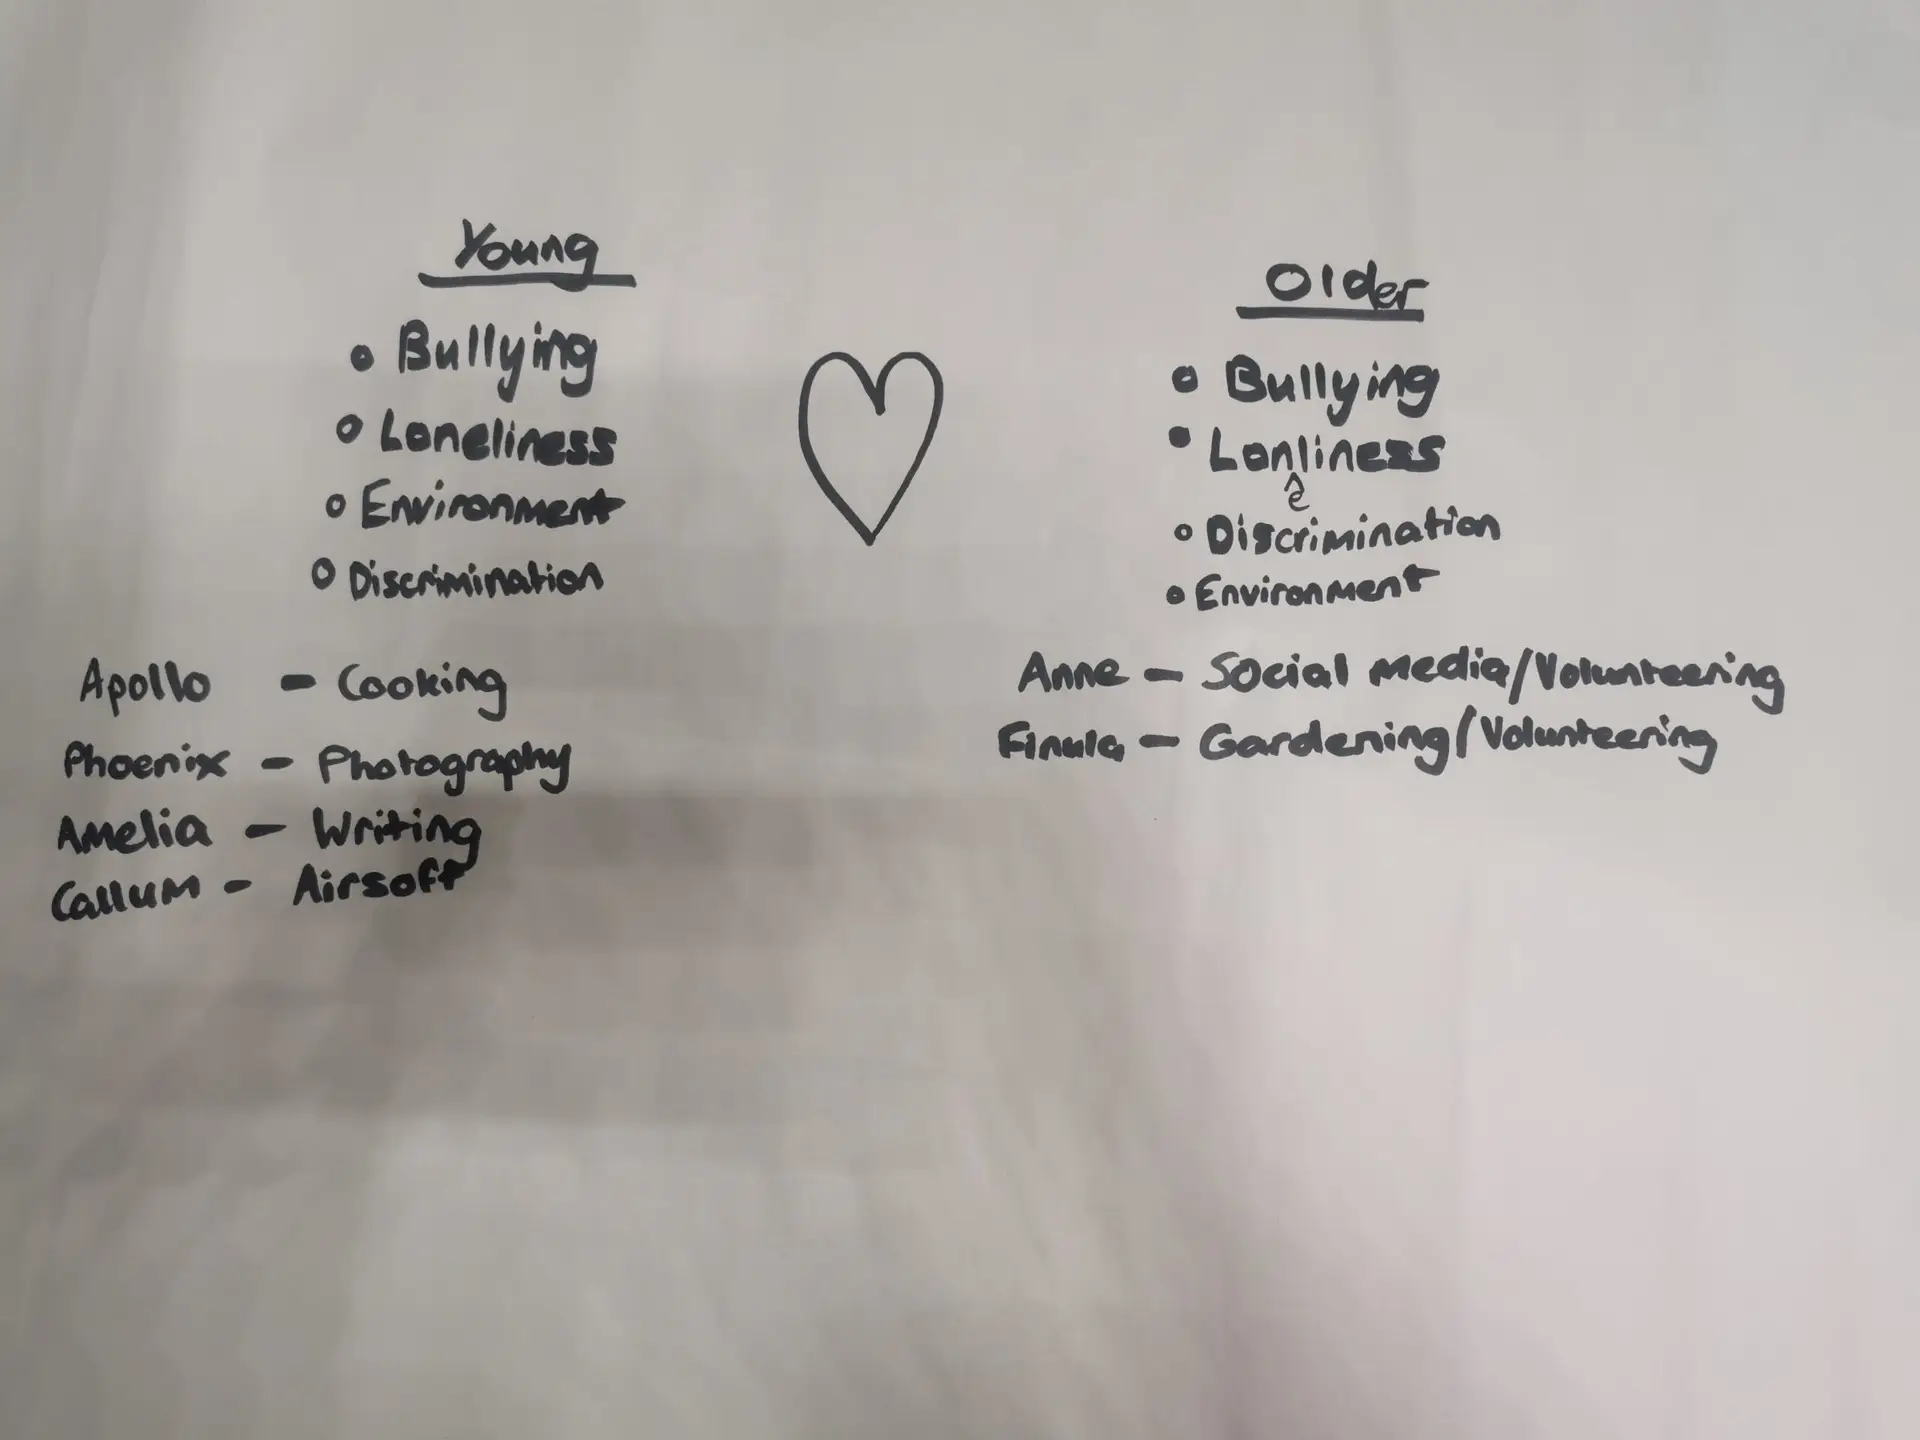 Young
• Bullying
• Loneliness
• Environment
• Discrimination
Apollo - Cooking
Phoenix - Photography
Amelia - Writing
Callum - Airsoft
Older
• Bullying
• Lonliness
^
e
• Discrimination
• Environment
Anne - Social Media/Volunteering
Finula - Gardening/Volunteering